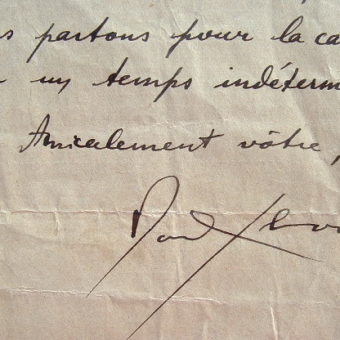 s partons pour la ca
un temps indéterm
Amicalement vôtre,